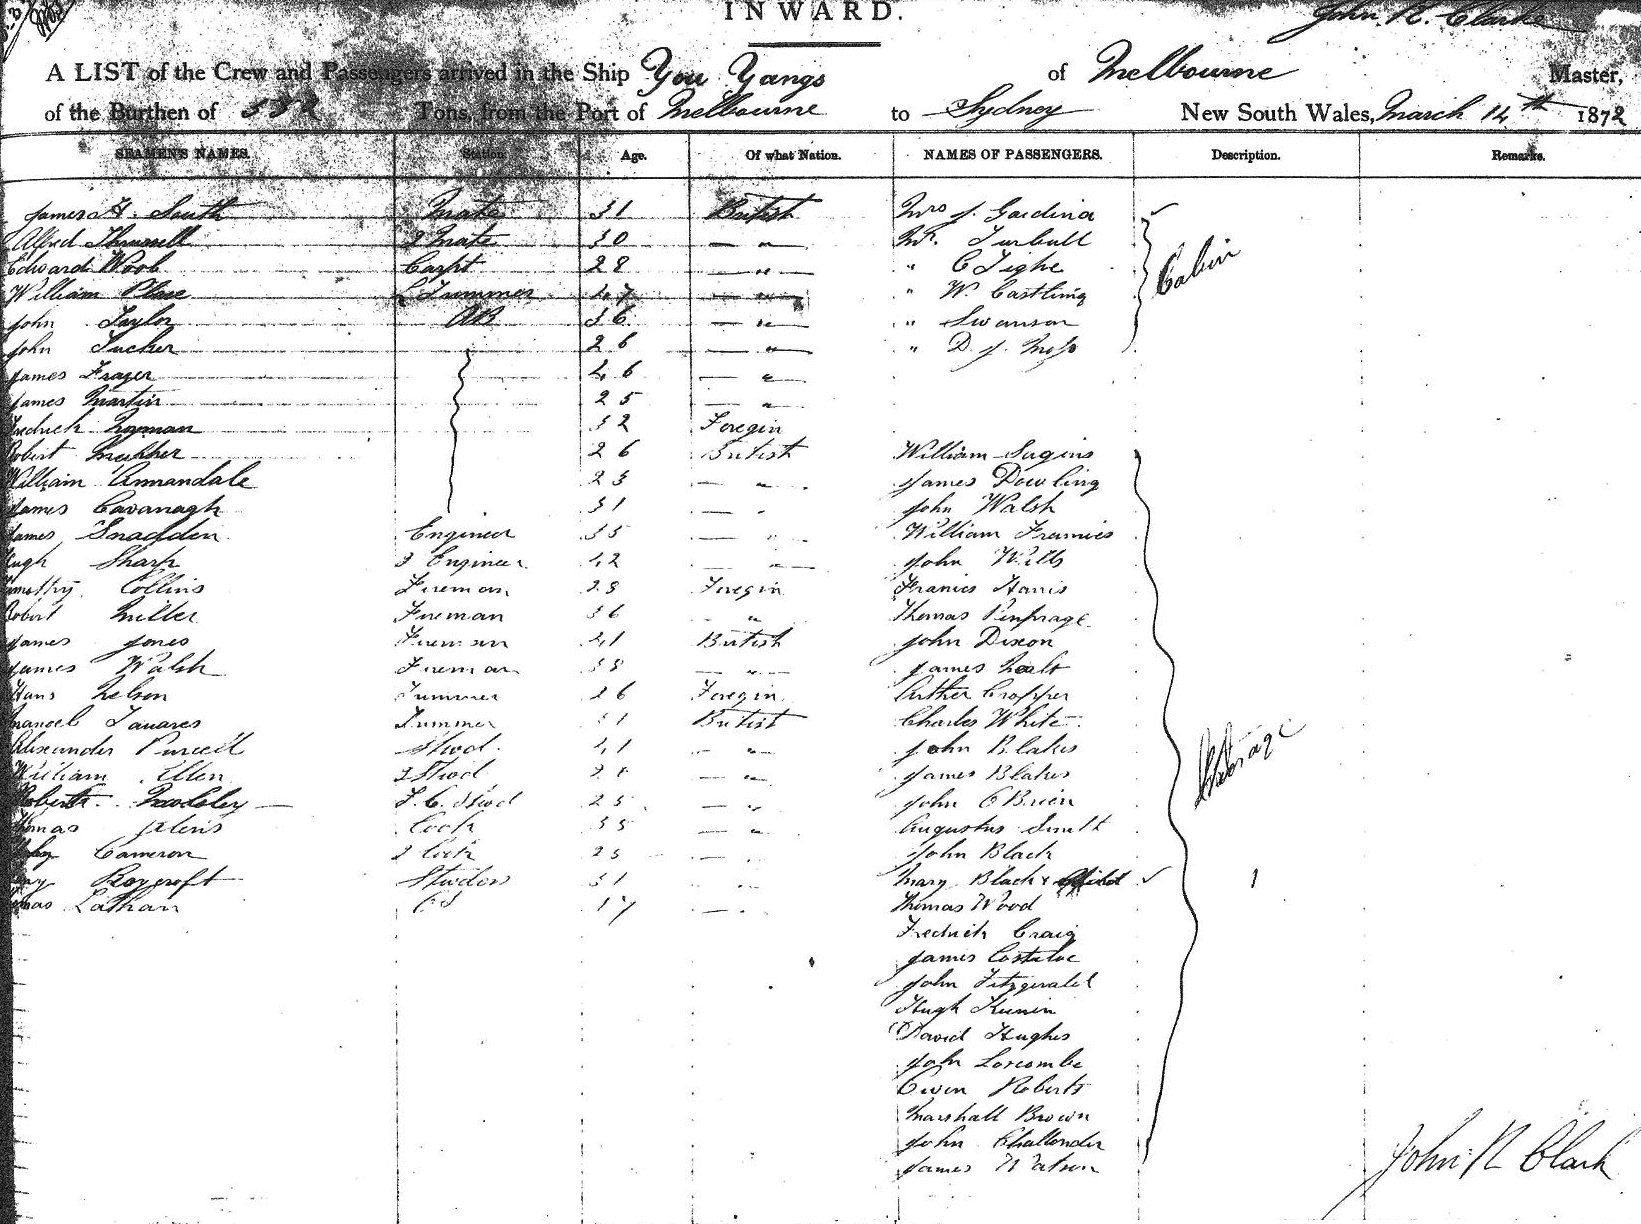 INWARD.
John R. Clarke
A LIST of the Crew and Passengers arrived in the Ship You Yangs of Melbourne Master,
of the Burthen of 532 Tons, from the Port of Melbourne to Sydney New South Wales, March 14th 1872
SEAMEN'S NAMES. Station Age. Of what Nation. NAMES OF PASSENGERS. Description. Remarks.
James A. South Mate 31 British Mrs J. Gardina
Alfred Thrussell 2 Mate 30 — " — Mr. Turball
Edward Woob Carpt 28 — " — " C Tighe Cabin
William Place L Trimmer 47 — " — " W. Castling
John Taylor AB 36 — " — " Swanson
John Tucker 26 — " — " D. J.
James Frazer 46 — " —
James Martin 25 — " —
Fredrich Nyman 32 Foregin
Robert 26 British William Sugins
William Annandale 23 — " — James Dowling
James Cavanagh 31 — " John Walsh
James Snadden Engineer 35 — " William Francies
Hugh Sharp 2 Engineer 42 — " — John Wills
Timothy Collins Fireman 28 Foregin Francies Harris
Robert Miller Fireman 36 " Thomas Penprage
James Jones Fireman 41 British John Dixon
James Walsh Fireman 38 — " — James
Hans Nelson Trimmer 26 Foregin Arther Cropper
Manoel Tavares Trimmer 31 British Charles White
Alexander Purcell Stwd. 41 — " John Blakes Steerage
William Ellen 2 Stwd — " James Blakes
Robert F. C. Stwd 25 — " John O Brien
Thomas Cook 35 — " Augustus Smith
Cameron 2 Cook 25 — " John Black
Roycroft Stwdess 31 " Mary Black & Child 1
Thomas Lathan 17 — " Thomas Wood
Fredrich Craig
James Costeloe
John Fitzgerald
Hugh Kunin
David Hughes
John Lorcombe
Owen Roberts
Marshall Brown
John Challender
James Watson
John R Clark